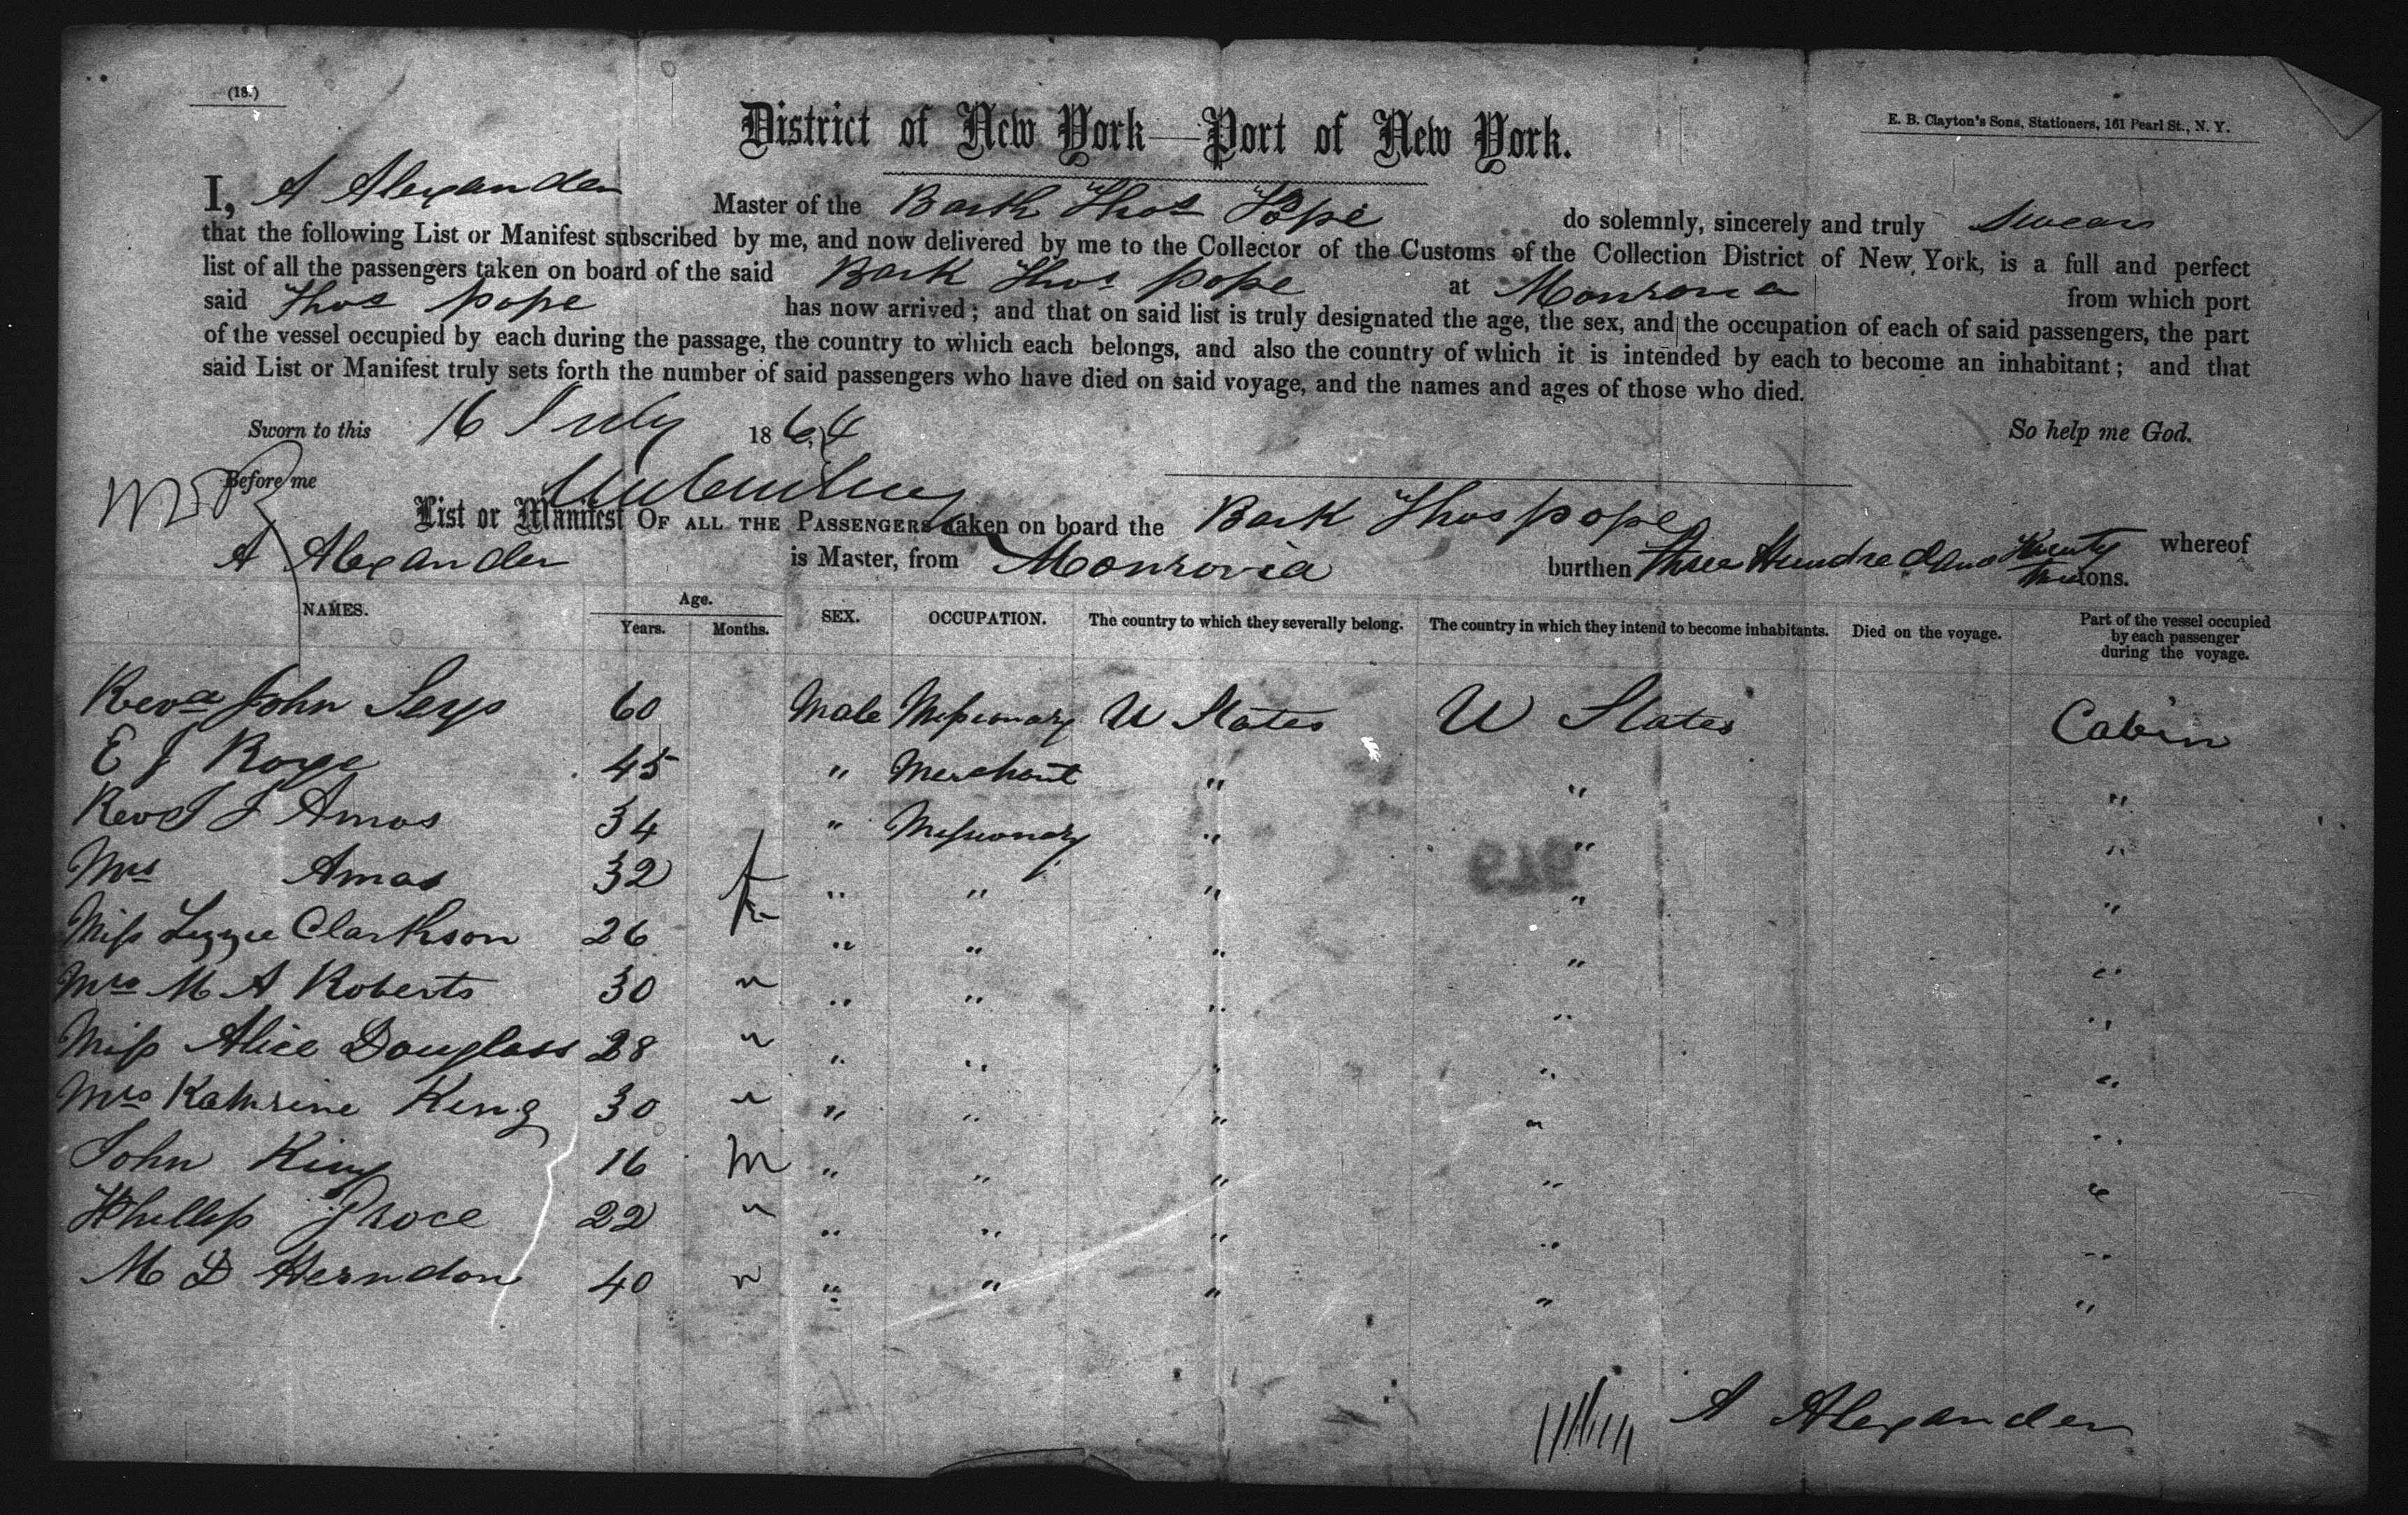 (18.)
District of New York—Port of New York.
E. B. Clayton's Sons, Stationers, 161 Pearl St., N. Y.
I, A Alexander Master of the Bark Thos Pope do solemnly, sincerely and truly Swear
that the following List or Manifest subscribed by me, and now delivered by me to the Collector of the Customs of the Collection District of New York, is a full and perfect
list of all the passengers taken on board of the said Bark Thos pope at Monrovia from which port
said Thos pope has now arrived; and that on said list is truly designated the age, the sex, and the occupation of each of said passengers, the part
of the vessel occupied by each during the passage, the country to which each belongs, and also the country of which it is intended by each to become an inhabitant; and that
said List or Manifest truly sets forth the number of said passengers who have died on said voyage, and the names and ages of those who died.
Sworn to this 16 July 1864 So help me God.
Before me
List or Manifest OF ALL THE PASSENGERS taken on board the Bark Thos pope whereof
A Alexander is Master, from Monrovia burthen Three Hundred and Twenty tons.
NAMES. Age. Years. Months. SEX. OCCUPATION. The country to which they severally belong. The country in which they intend to become inhabitants. Died on the voyage. Part of the vessel occupied by each passenger during the voyage.
Revd John Seys 60 Male Missionary U States U States Cabin
E J Roye 45 " Merchant " " "
Revd J Amos 34 " Missionary " " "
Mrs Amos 32 f " " " " "
Miss Lizzie Clarkson 26 " " " " " "
Mrs M A Roberts 30 " " " " " "
Miss Alice Douglass 28 " " " " " "
Mrs Kathrine King 30 " " " " " "
John King 16 m " " " " "
Phillip 22 " " " " " "
M D Herndon 40 " " " " " "
A Alexander